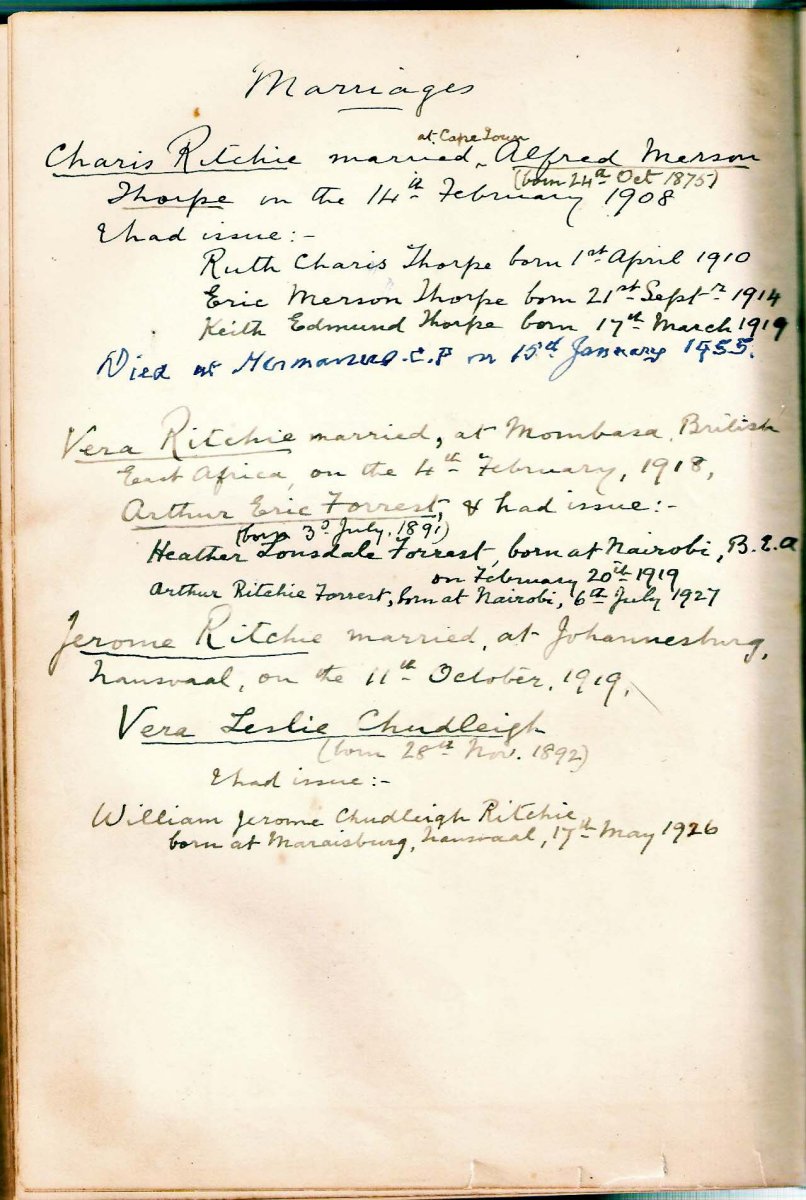 Marriages
at Cape Town
Charis Ritchie married, Alfred Merson
(born 24th Oct 1875)
Thorpe on the 14th February 1908
& had issue:-
Ruth Charis Thorpe born 1st April 1910
Eric Merson Thorpe born 21st Septr 1914
Keith Edmund Thorpe born 17th March 1919
Died at Hermanus. C.P on 15th January 1955.
Vera Ritchie married, at Mombasa, British
East Africa, on the 4th February, 1918,
Arthur Eric Forrest, & had issue:-
(born 3d July, 1891)
Heather Lonsdale Forrest, born at Nairobi, B.E.A
on February 20th 1919
Arthur Ritchie Forrest, born at Nairobi, 6th July 1927
Jerome Ritchie married, at Johannesburg,
Transvaal, on the 11th October, 1919,
Vera Leslie Chudleigh
(born 28th Nov. 1892)
& had issue:-
William Jerome Chudleigh Ritchie,
born at Maraisburg, Transvaal, 17th May 1926